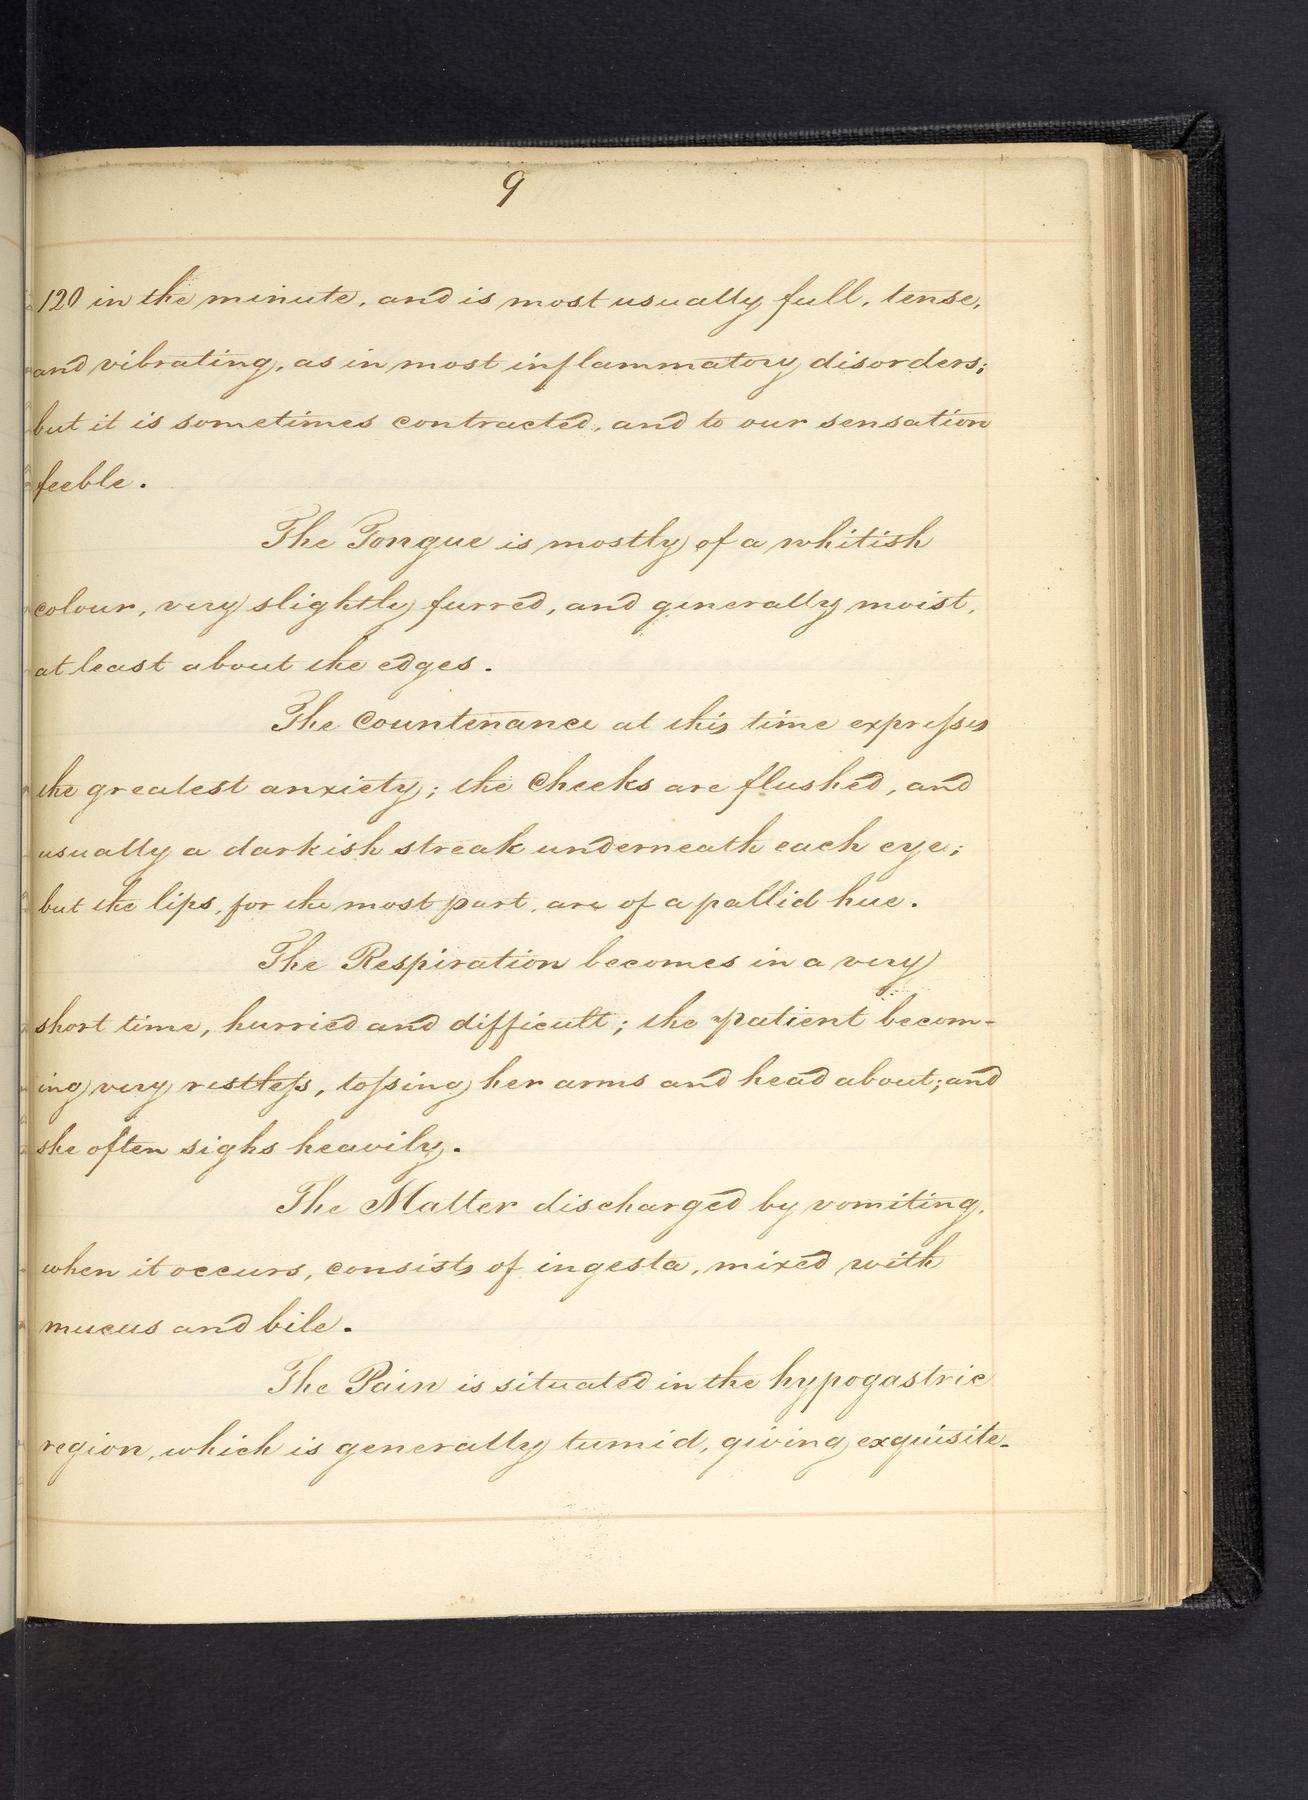 9
120 in the minute, and is most usually full, tense,
and vibrating, as in most inflammatory disorders;
but it is sometimes contracted, and to our sensation
feeble.
The Tongue is mostly of a whitish
colour, very slightly furred, and generally moist,
at least about the edges.
The Countenance at this time expreſses
the greatest anxiety; the Cheeks are flushed, and
usually a darkish streak underneath each eye;
but the lips, for the most part, are of a pallid hue.
The Respiration becomes in a very
short time, hurried and difficult; the patient becom-
ing very restleſs, toſsing her arms and head about; and
she often sighs heavily.
The Matter discharged by vomiting,
when it occurs, consists of ingesta, mixed with
mucus and bile.
The Pain is situated in the hypogastric
region, which is generally tumid, giving exquisite-